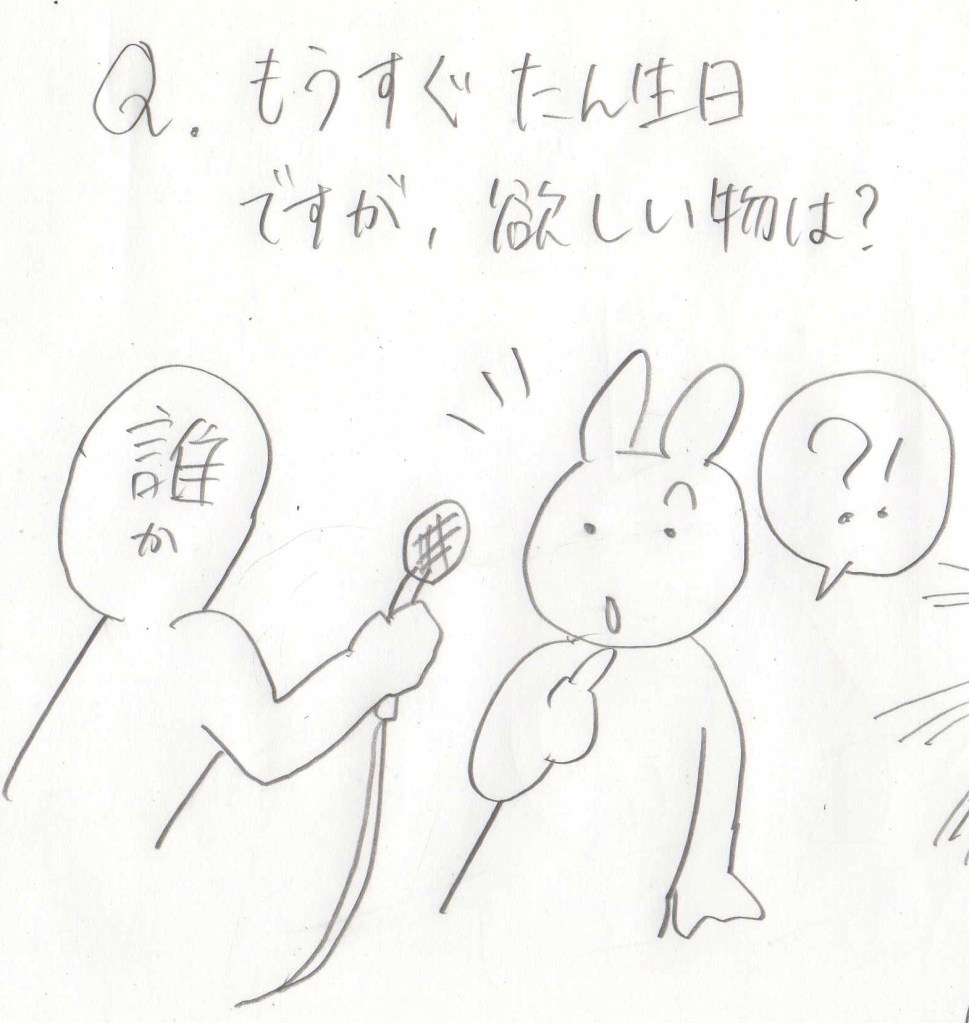 Q. もうすぐたん生日
ですが、欲しい物は?
誰
か
?!